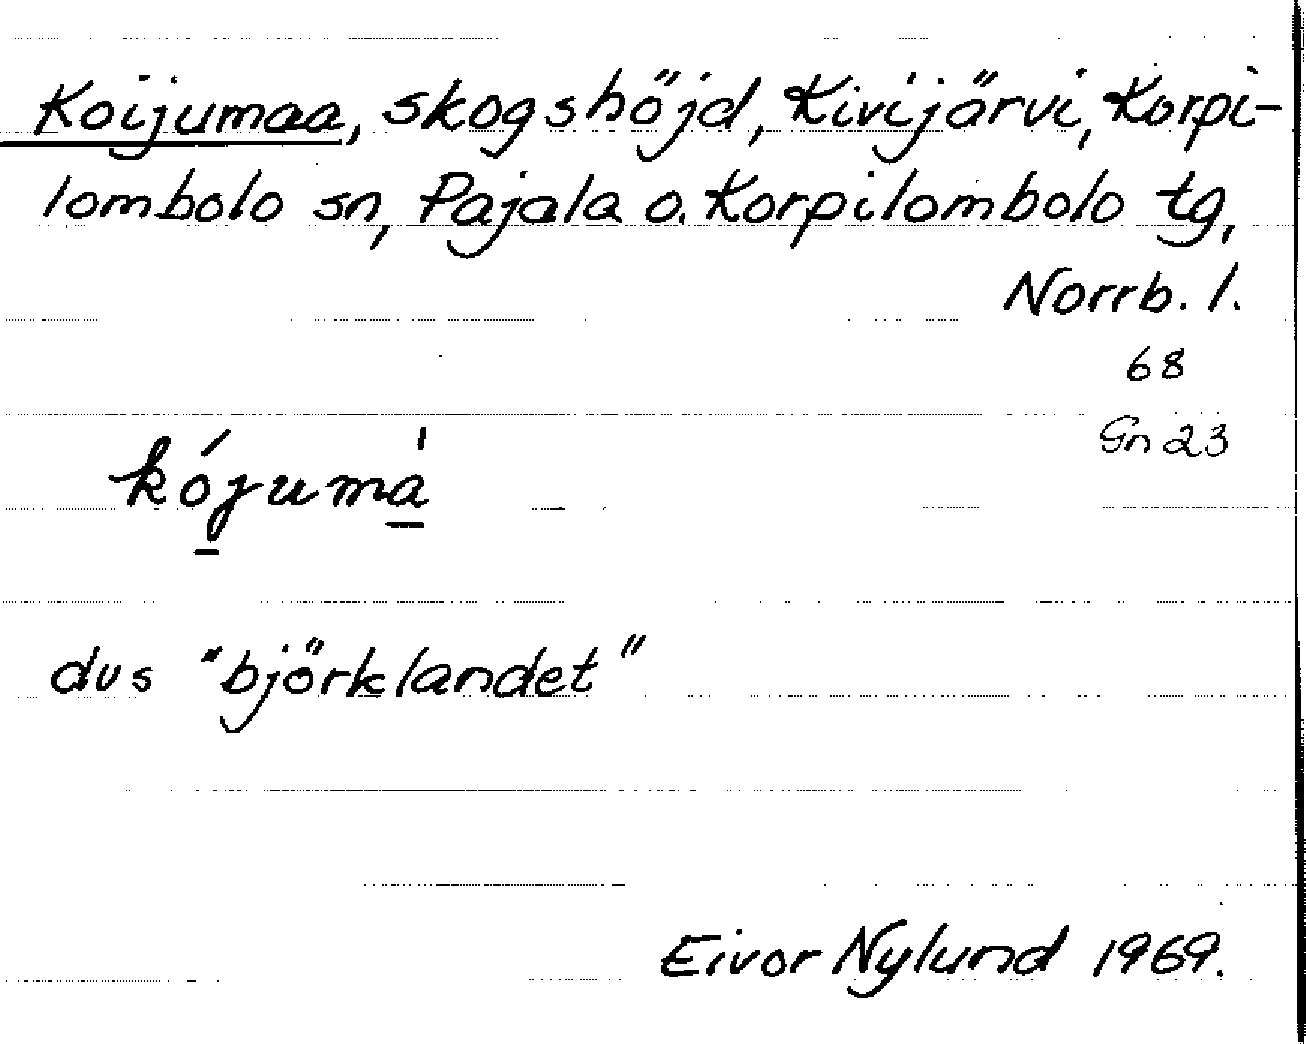 Koijumaa, skogshöjd, Kivijärvi, Korpi-
lombolo sn, Pajala o. Korpilombolo tg,
Norrb. l.
68
Gn 23
kó̱jumá̱
dvs "björklandet"
Eivor Nylund 1969.